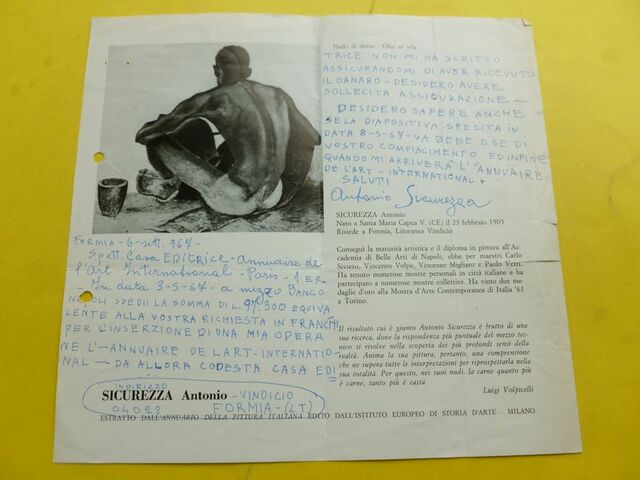 Nudo di donna - Olio su tela
FORMIA - 6 - sett. 967 -
Spett. CASA EDITRICE - Annuaire de
l'Art International - Paris - 1 ER
- In data 3-5-67 - a mezzo BANCO
NAPOLI SPEDII LA SOMMA DI L. 97.300 EQUIVA
LENTE ALLA VOSTRA RICHIESTA IN FRANCHI
PER L'INSERZIONE DI UNA MIA OPERA
NE L'-ANNUAIRE DE L'ART-INTERNATIO-
NAL - DA ALLORA CODESTA CASA EDI
TRICE NON MI HA SCRITTO
ASSICURANDOMI DI AVER RICEVUTO
IL DANARO - DESIDERO AVERE
SOLLECITA ASSICURAZIONE -
DESIDERO SAPERE ANCHE
SE LA DIAPOSITIVA SPEDITA IN
DATA 8-5-67 - VA BENE E SE DI
VOSTRO COMPIACIMENTO ED INFINE
QUANDO MI ARRIVERÀ L'"ANNUAIRE
DE L'ART - INTERNATIONAL
SALUTI
Antonio Sicurezza
SICUREZZA Antonio
Nato a Santa Maria Capua V. (CE) il 25 febbraio 1905
Risiede a Formia, Litoranea Vindicio
Conseguì la maturità artistica e il diploma in pittura all'Ac-
cademia di Belle Arti di Napoli; ebbe per maestri Carlo
Siviero, Vincenzo Volpe, Vincenzo Migliaro e Paolo Vetri.
Ha tenuto numerose mostre personali in città italiane e ha
partecipato a numerose mostre collettive. Ha vinto due me-
daglie d'oro alla Mostra d'Arte Contemporanea di Italia '61
a Torino.
Il risultato cui è giunto Antonio Sicurezza è frutto di una
sua ricerca, dove la rispondenza più puntuale del mezzo tec-
nico si risolve nella scoperta dei più profondi sensi della
realtà. Anima la sua pittura, pertanto, una comprensione
che ne supera tutte le interpretazioni per riprospettarla nella
sua totalità. Per questo, nei suoi nudi, la carne quanto più
è carne, tanto più è casta.
Luigi Volpicelli
INDIRIZZO
SICUREZZA Antonio - VINDICIO
04023 FORMIA - (LT)
ESTRATTO DALL'ANNUARIO DELLA PITTURA ITALIANA EDITO DALL'ISTITUTO EUROPEO DI STORIA D'ARTE - MILANO